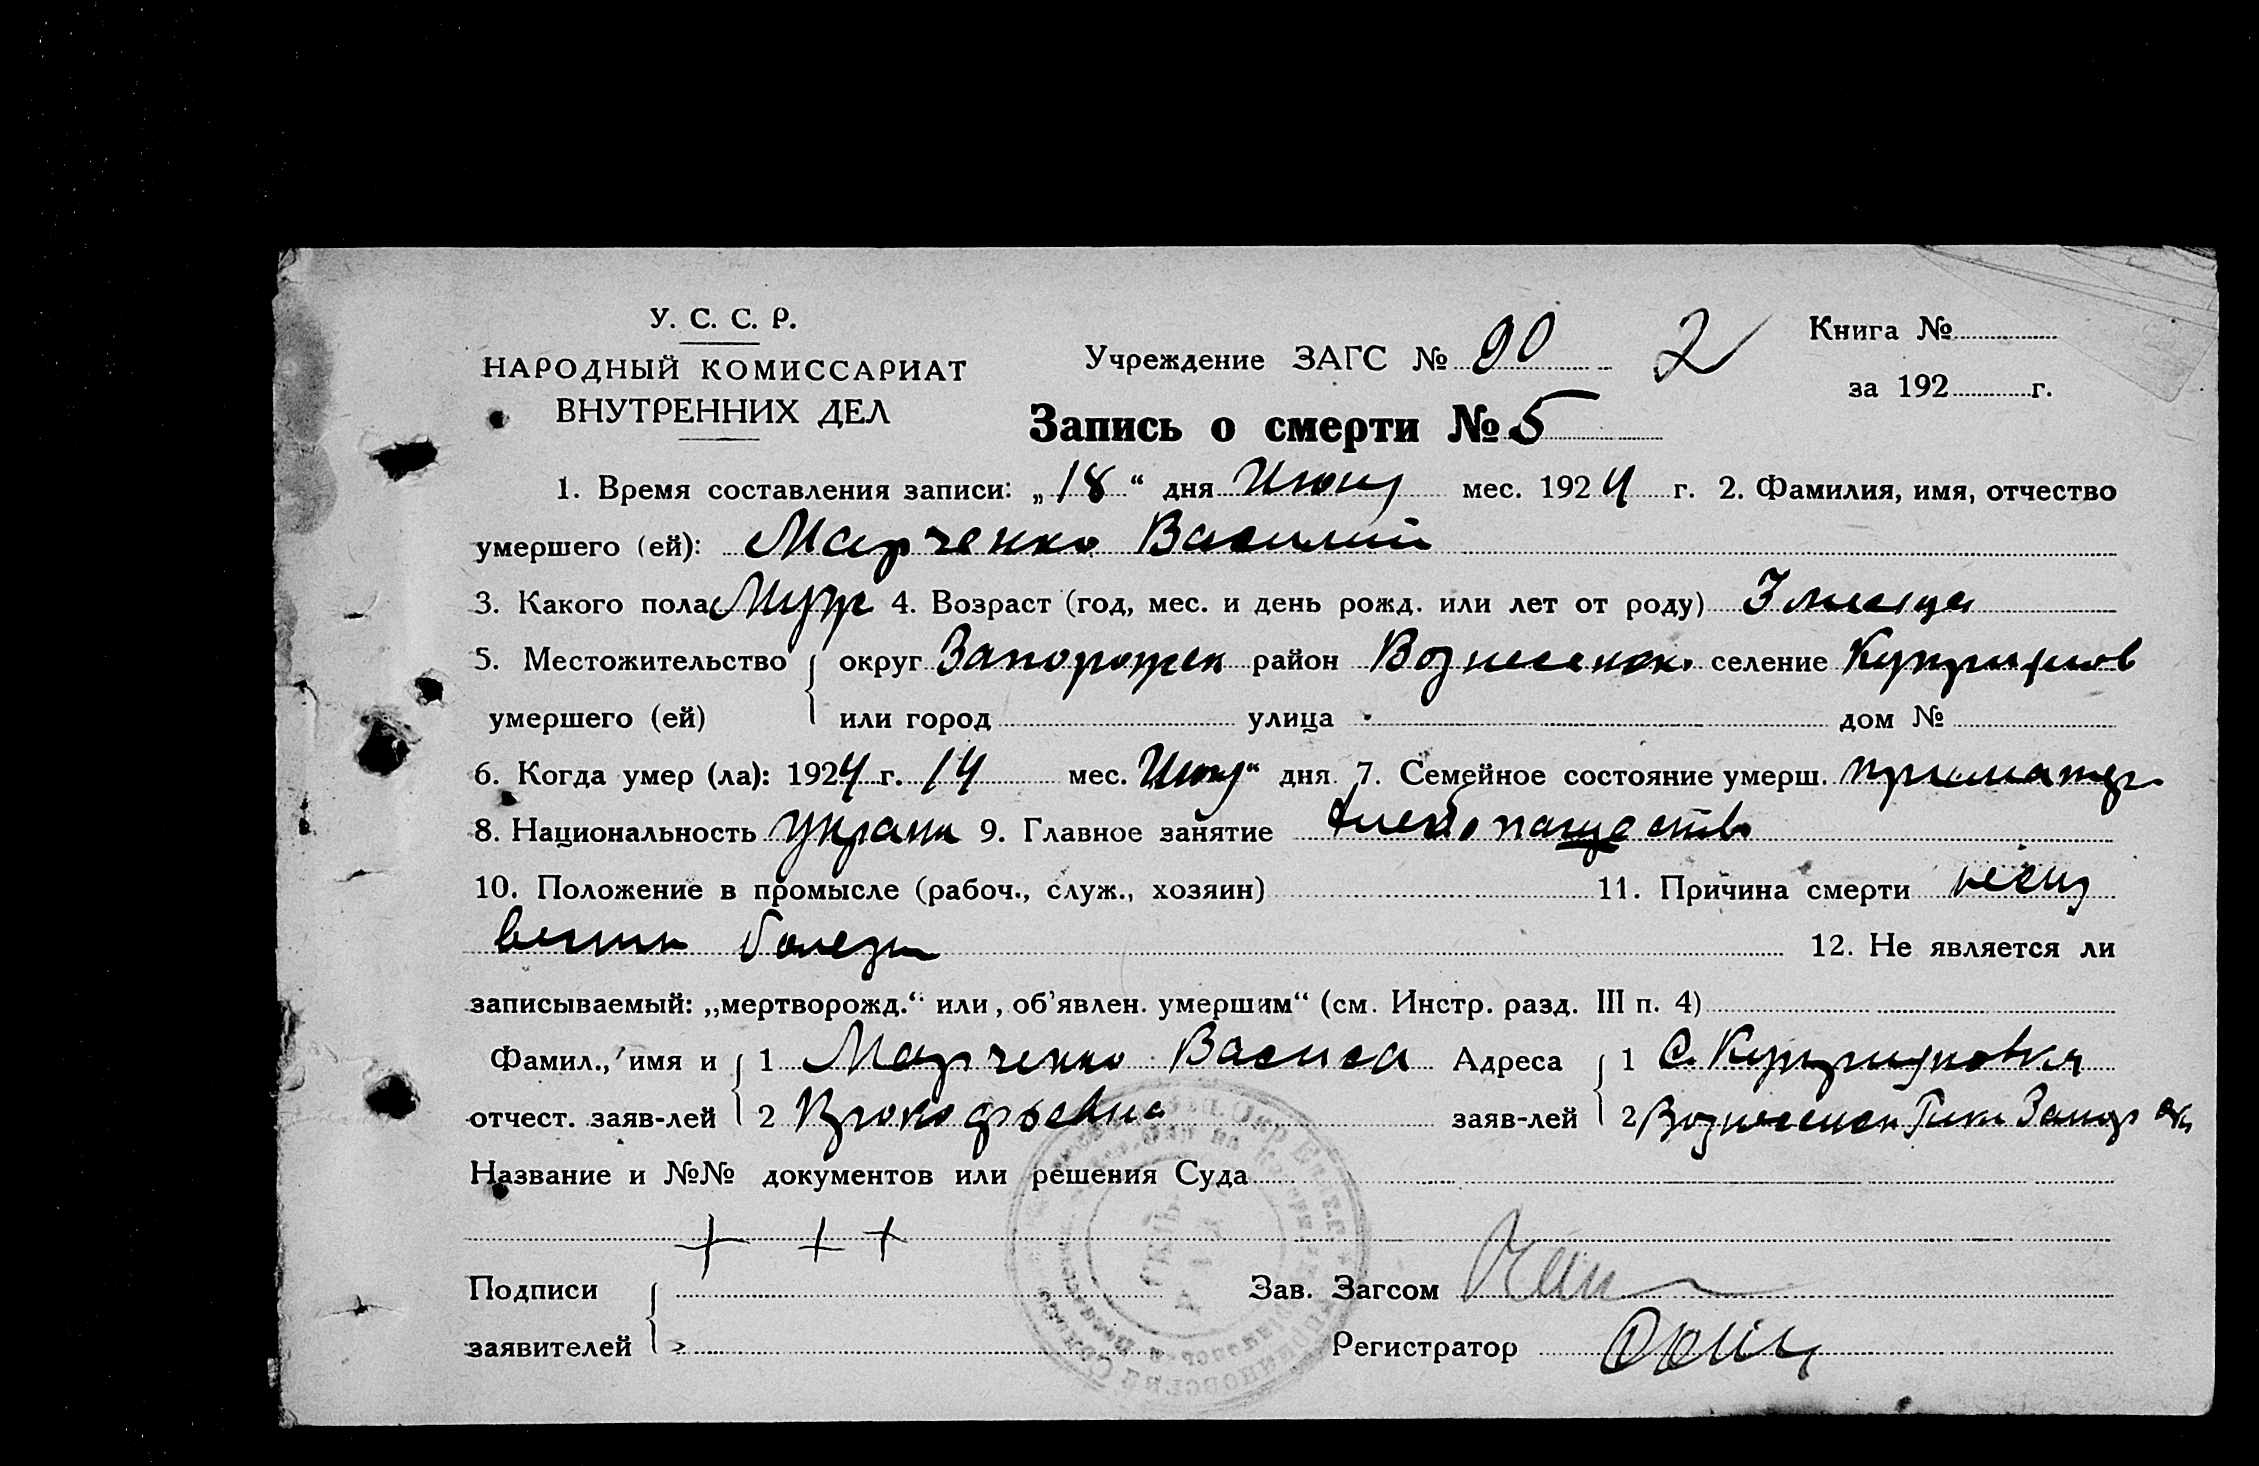 У. С. С. Р.
НАРОДНЫЙ КОМИССАРИАТ
ВНУТРЕННИХ ДЕЛ
Учреждение ЗАГС № 90 2
Книга №
за 192 г.
Запись о смерти № 5
1. Время составления записи: „18“ дня Июня мес. 1924 г. 2. Фамилия, имя, отчество
умершего (ей): Марченко Василий
3. Какого пола Муж 4. Возраст (год, мес. и день рожд. или лет от роду) 3 месяца
5. Местожительство округ Запорожск район Вознесенск. селение
умершего (ей) или город улица дом №
6. Когда умер (ла): 1924 г. 14 мес. Июня“ дня 7. Семейное состояние умерш. при матери
8. Национальность Украин 9. Главное занятие хлебопашество
10. Положение в промысле (рабоч., служ., хозяин) 11. Причина смерти неиз
вестн болезн
12. Не является ли
записываемый: „мертворожд.“ или „об’явлен. умершим“ (см. Инстр. разд. III п. 4)
Фамил., имя и 1 Марченко Васиса Адреса 1 С.
отчест. заяв-лей 2 заяв-лей 2 Вознесенск Запор окр
Название и №№ документов или решения Суда
+ + +
Подписи Зав. Загсом
заявителей Регистратор